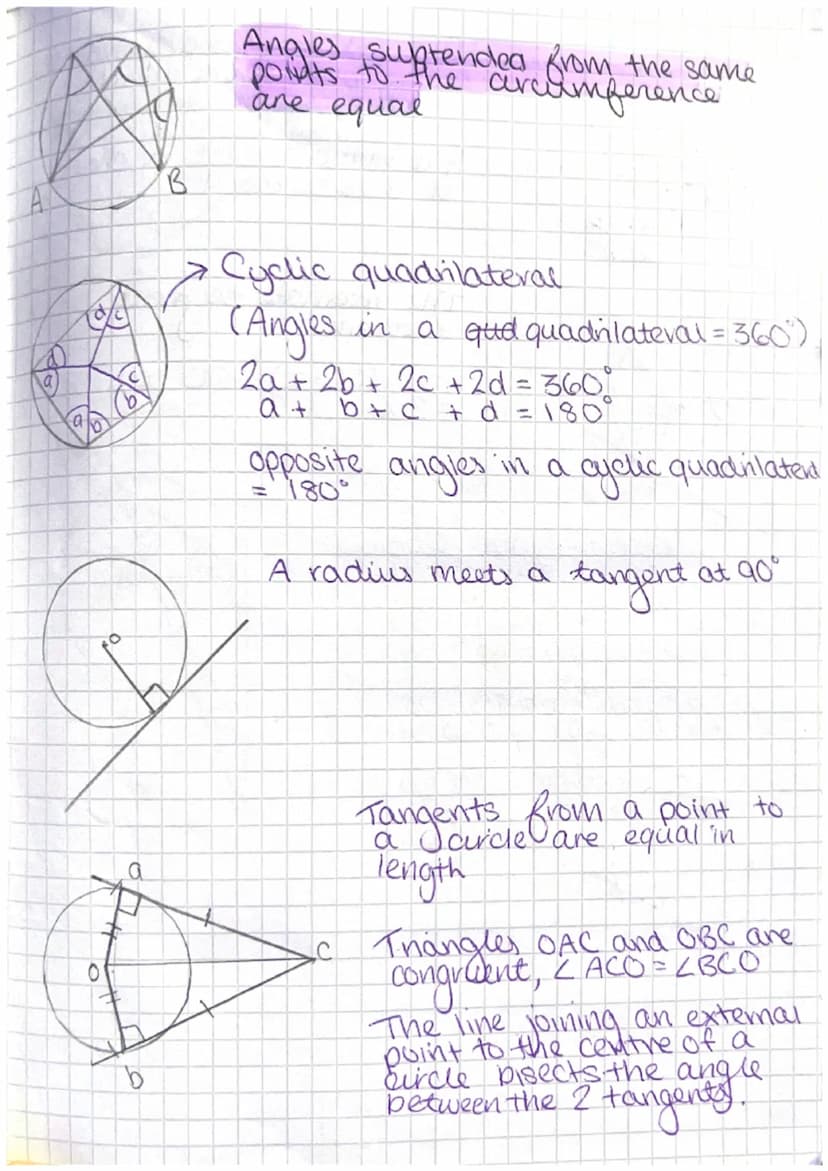 Angles suptended from the same
points to the circumference
are equal
A
B
→ Cyclic quadrilateral
(Angles in a qud quadrilateral = 360°)
d c
d
a
c
b
a b
2a + 2b + 2c + 2d = 360°
a + b + c + d = 180°
opposite angles in a cyclic quadrilateral
= 180°
A radius meets a tangent at 90°
o
Tangents from a point to
a circle are equal in
length
a
O
C
b
Triangles OAC and OBC are
congruent, ∠ACO = ∠BCO
The line joining an external
point to the centre of a
circle bisects the angle
between the 2 tangents.